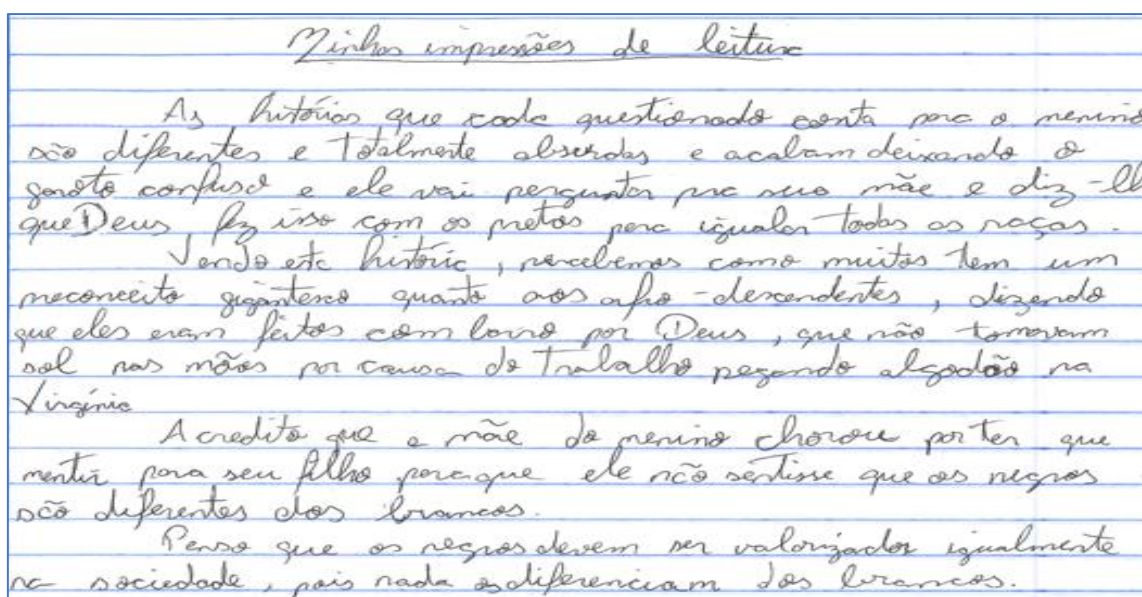 Minhas impressões de leitura
As histórias que cada questionado conta para o menino
são diferentes e totalmente absurdas e acabam deixando o
garoto confuso e ele vai perguntar pra sua mãe e diz-lhe
que Deus, fez isso com os pretos para igualar todas as raças.
Vendo esta história, percebemos como muitos tem um
preconceito gigantesco quanto aos afro-descendentes, dizendo
que eles eram feitos com barro por Deus, que não tomavam
sol nas mãos por causa do trabalho pegando algodão na
Virgínia
Acredito que a mãe do menino chorou por ter que
mentir para seu filho para que ele não sentisse que os negros
são diferentes dos brancos.
Penso que os negros devem ser valorizados igualmente
na sociedade, pois nada os diferenciam dos brancos.